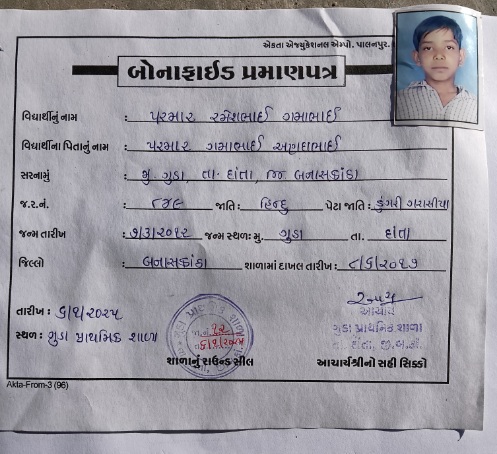 એકતા એજ્યુકેશનલ એમ્પો. પાલનપુર.
બોનાફાઈડ પ્રમાણપત્ર
વિદ્યાર્થીનું નામ : પરમાર રમેશભાઈ ગમાભાઈ
વિદ્યાર્થીના પિતાનું નામ : પરમાર ગમાભાઈ
સરનામું : મુ. ગુડા, તા. દાંતા, જી બનાસકાંઠા
જ.ર.નં. : ૮૪૯ જાતિ : હિન્દુ પેટા જાતિ : ડુંગરી ગરાસીયા
જન્મ તારીખ : ૭/૩/૨૦૧૨ જન્મ સ્થળ: મુ. ગુડા તા. દાંતા
જિલ્લો : બનાસકાંઠા શાળામાં દાખલ તારીખ : ૮/૬/૨૦૧૭
તારીખ : ૬/૧/૨૦૨૫
સ્થળ : ગુડા પ્રાથમિક શાળા
જા.નં. ૧૨
૬/૧/૨૦૨૫
આચાર્ય
ગુડા પ્રાથમિક શાળા
તા. દાંતા, જી.બ.કાં.
શાળાનું રાઉન્ડ સીલ
આચાર્યશ્રીનો સહી સિક્કો
Akta-From-3 (96)